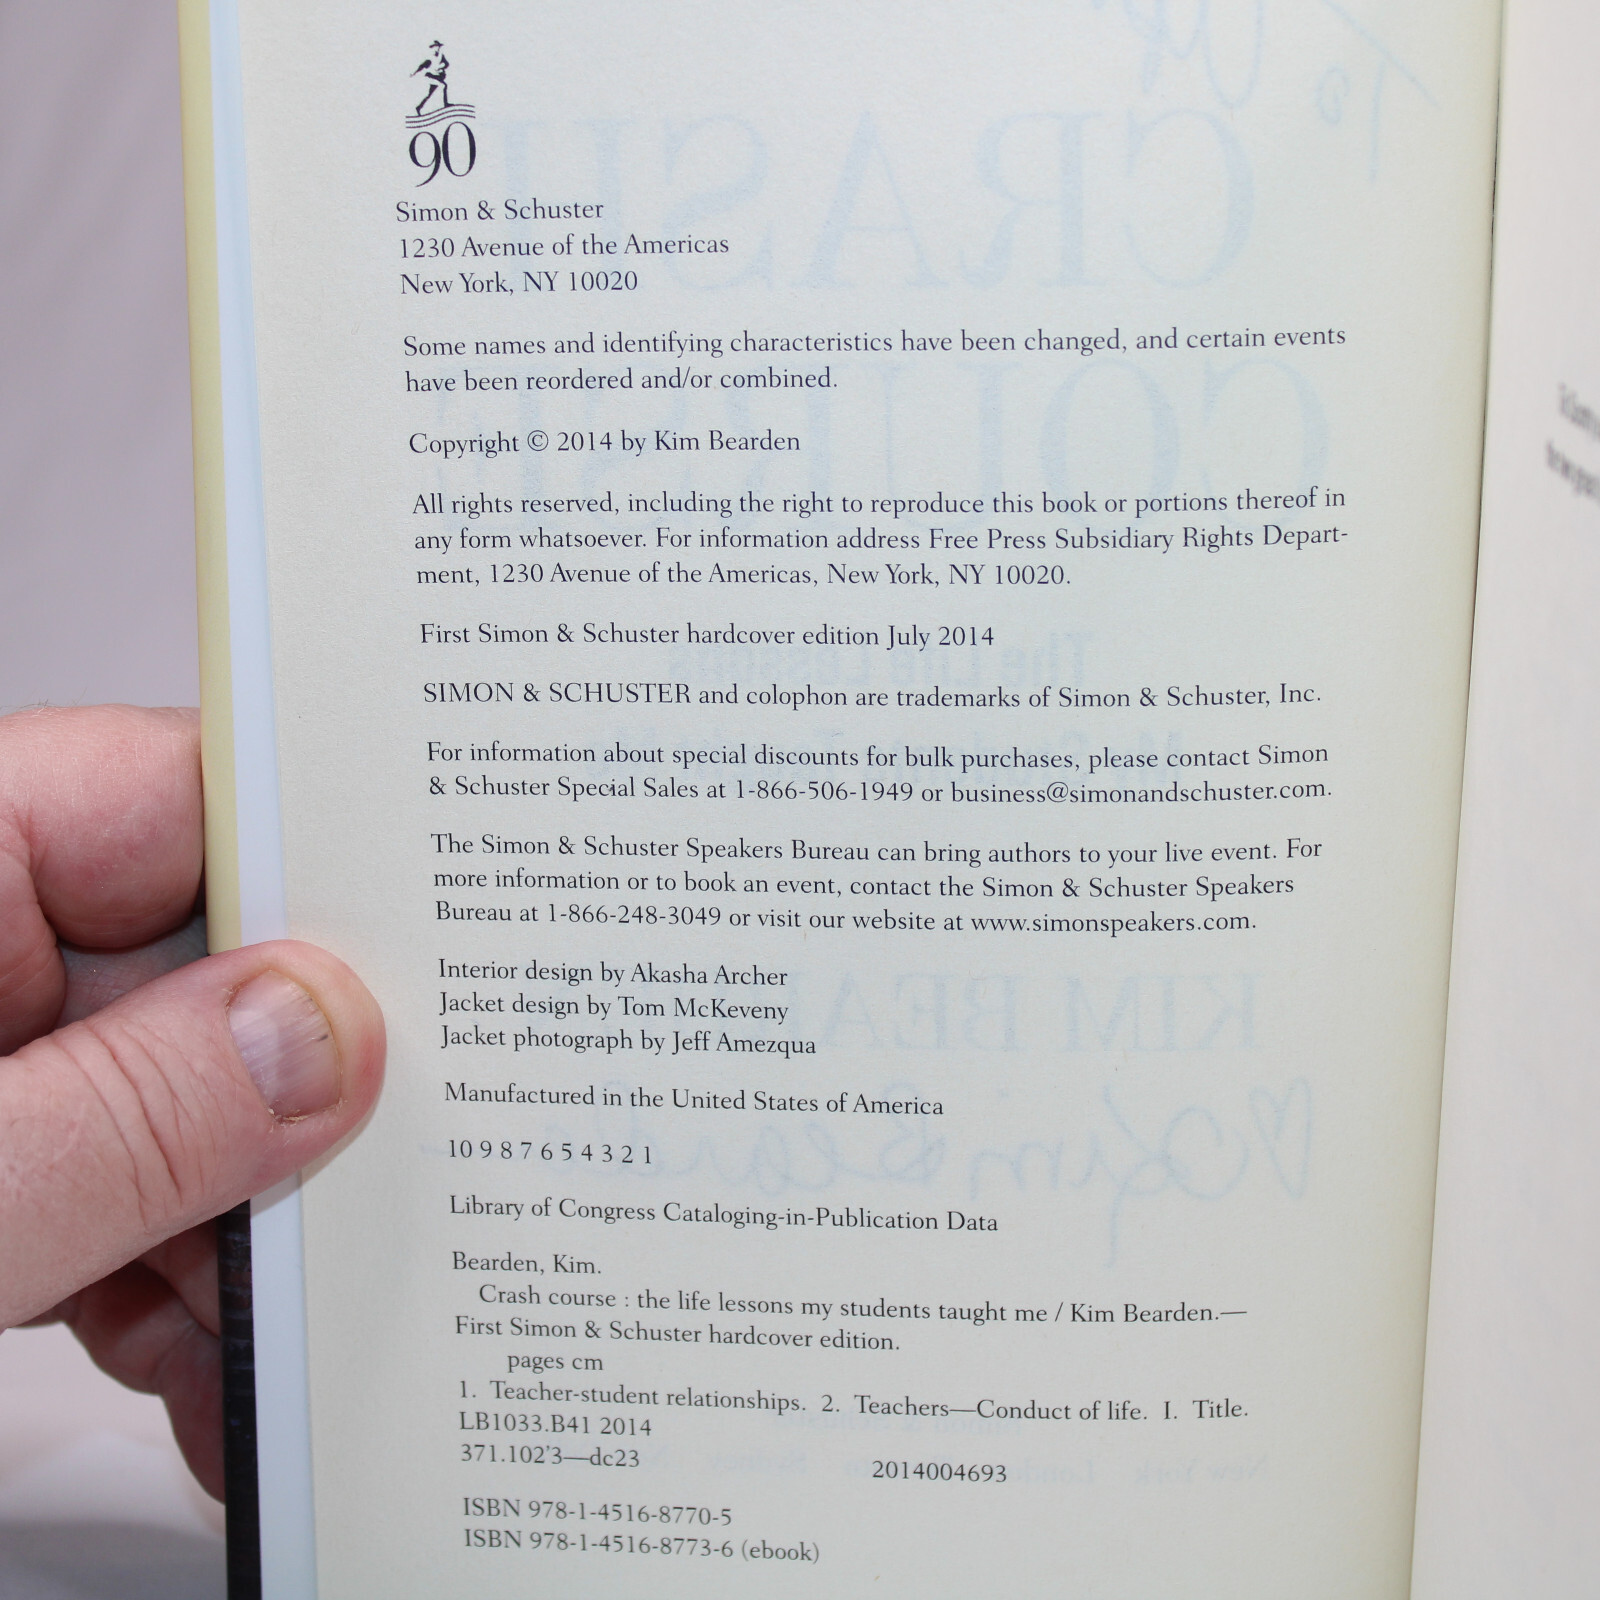 90
Simon & Schuster
1230 Avenue of the Americas
New York, NY 10020
Some names and identifying characteristics have been changed, and certain events
have been reordered and/or combined.
Copyright © 2014 by Kim Bearden
All rights reserved, including the right to reproduce this book or portions thereof in
any form whatsoever. For information address Free Press Subsidiary Rights Depart-
ment, 1230 Avenue of the Americas, New York, NY 10020.
First Simon & Schuster hardcover edition July 2014
SIMON & SCHUSTER and colophon are trademarks of Simon & Schuster, Inc.
For information about special discounts for bulk purchases, please contact Simon
& Schuster Special Sales at 1-866-506-1949 or business@simonandschuster.com.
The Simon & Schuster Speakers Bureau can bring authors to your live event. For
more information or to book an event, contact the Simon & Schuster Speakers
Bureau at 1-866-248-3049 or visit our website at www.simonspeakers.com.
Interior design by Akasha Archer
Jacket design by Tom McKeveny
Jacket photograph by Jeff Amezqua
Manufactured in the United States of America
10 9 8 7 6 5 4 3 2 1
Library of Congress Cataloging-in-Publication Data
Bearden, Kim.
Crash course : the life lessons my students taught me / Kim Bearden.—
First Simon & Schuster hardcover edition.
pages cm
1. Teacher-student relationships. 2. Teachers—Conduct of life. I. Title.
LB1033.B41 2014
371.102'3—dc23 2014004693
ISBN 978-1-4516-8770-5
ISBN 978-1-4516-8773-6 (ebook)